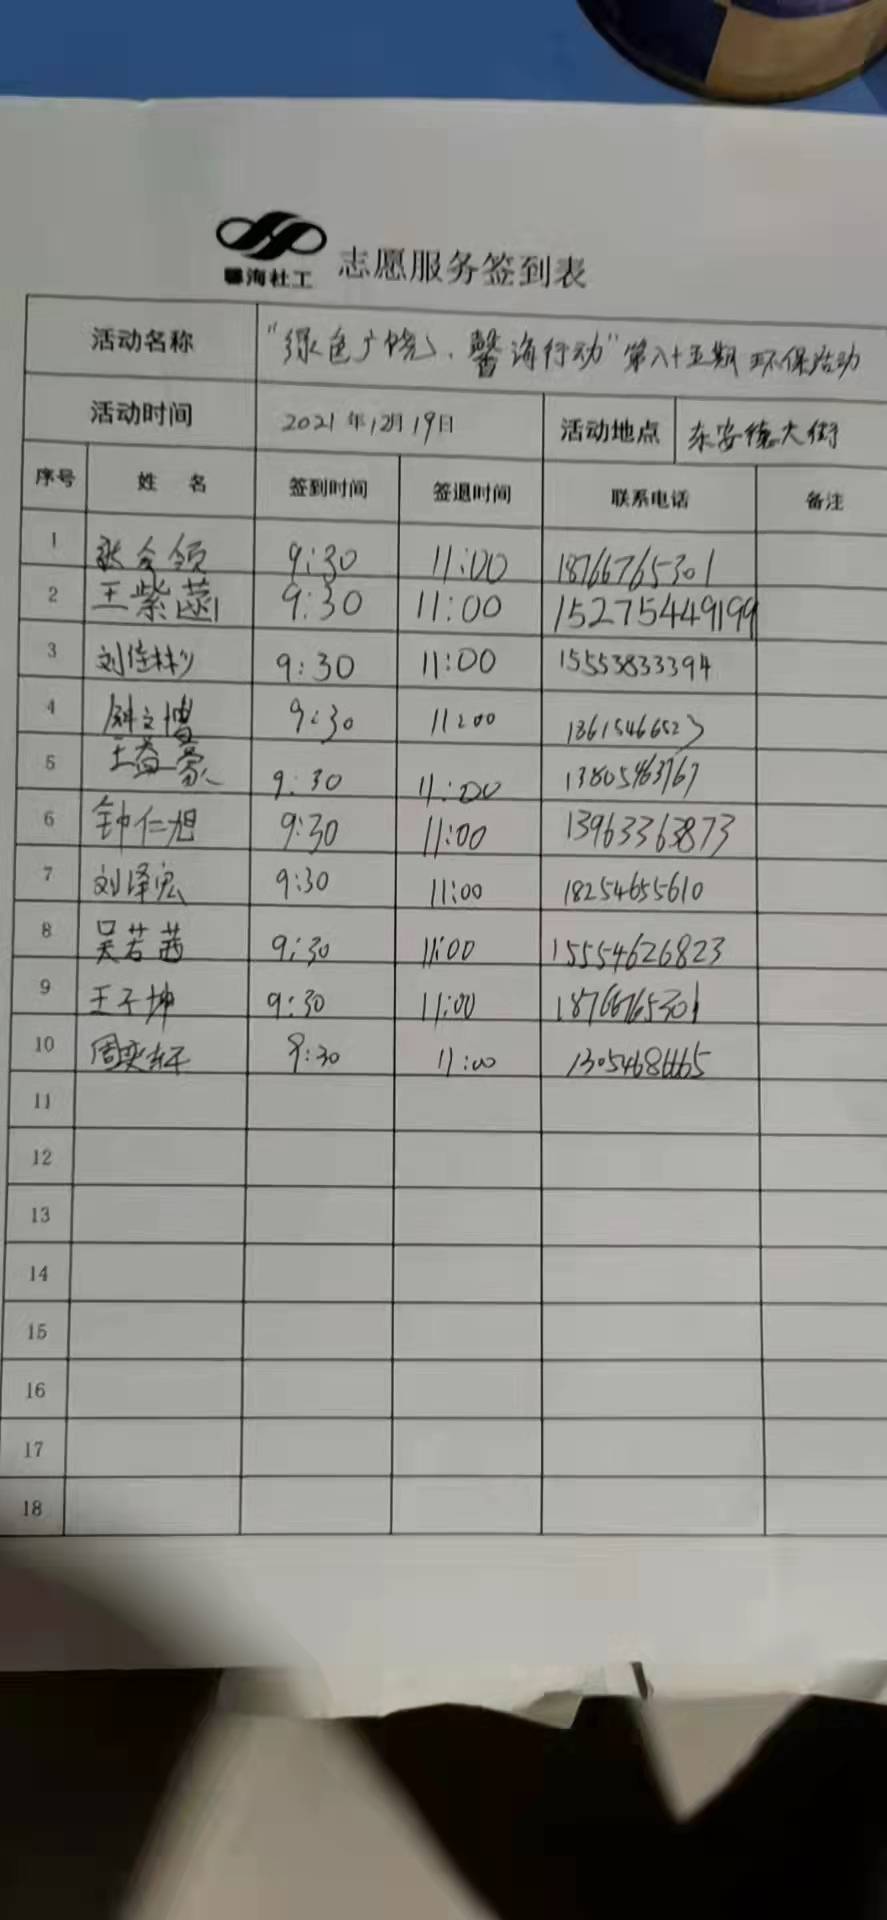 馨海社工 志愿服务签到表
活动名称 "绿色广饶、馨海行动"第八十五期环保活动
活动时间 2021年12月19日 活动地点 东安德大街
序号 姓 名 签到时间 签退时间 联系电话 备注
1 张会领 9:30 11:00 18766765301
2 王紫菡 9:30 11:00 15275449199
3 刘佳彬 9:30 11:00 15553833394
4 9:30 11:00 13615466523
5 王益豪 9:30 11:00 13805463767
6 钟仁旭 9:30 11:00 13963363873
7 刘泽宏 9:30 11:00 18254655610
8 吴若茜 9:30 11:00 15554626823
9 王子坤 9:30 11:00 18766765301
10 周奕轩 9:30 11:00
11
12
13
14
15
16
17
18